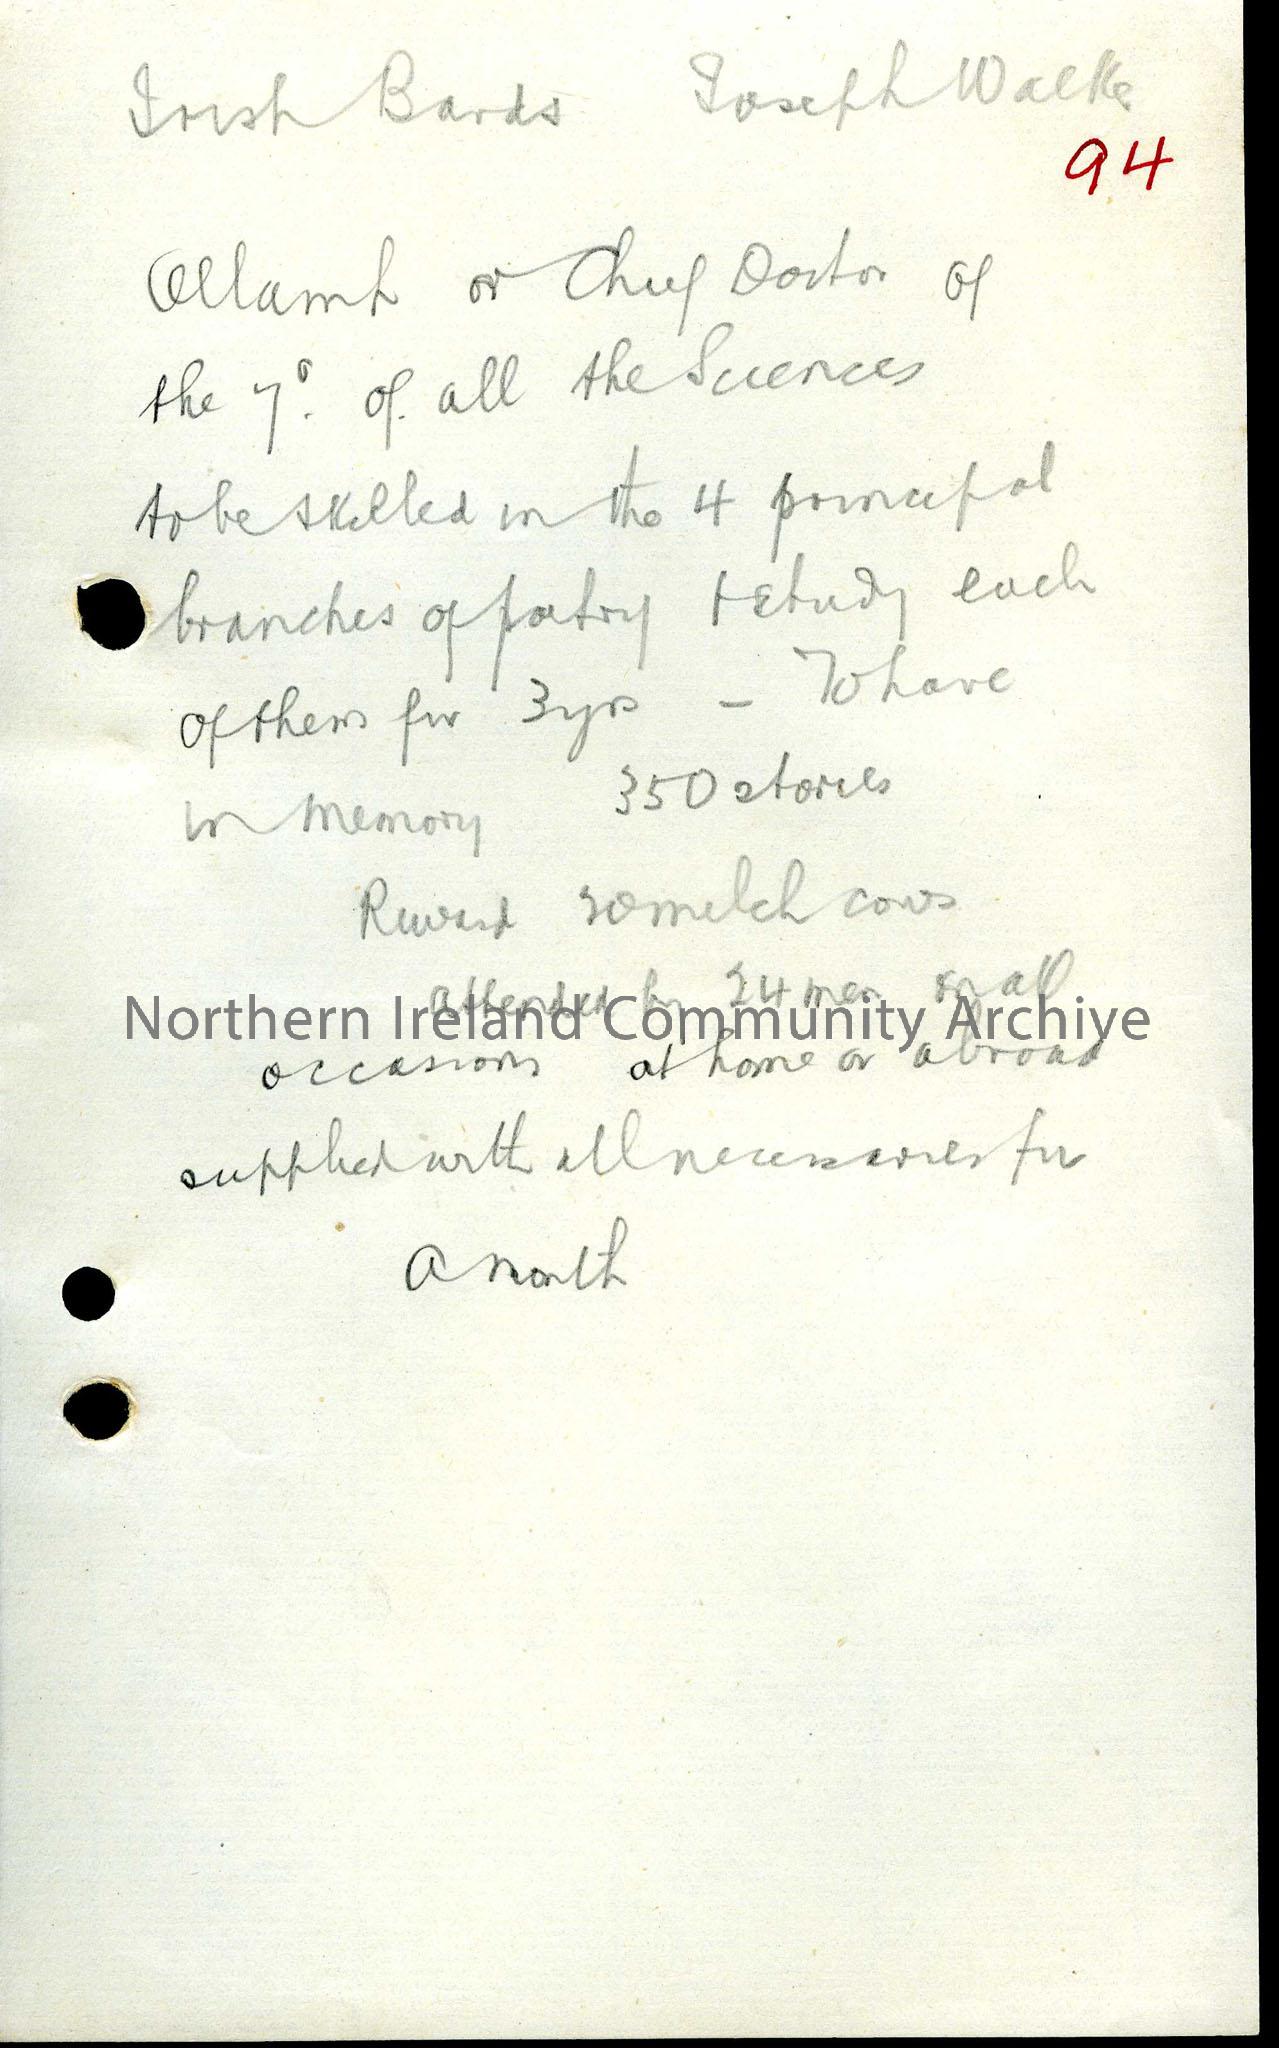 Irish Bards Joseph Walke
94
Ollamh or Chief Doctor of
the 7°. of. all the Sciences
to be skilled in the 4 principal
branches of poetry + study each
of them for 3 yrs – To have
in memory 350 stories
Reward milch cows
attended by 24 men on all
Northern Ireland Community Archive
occasions at home or abroad
supplied with all necessaries for
a month